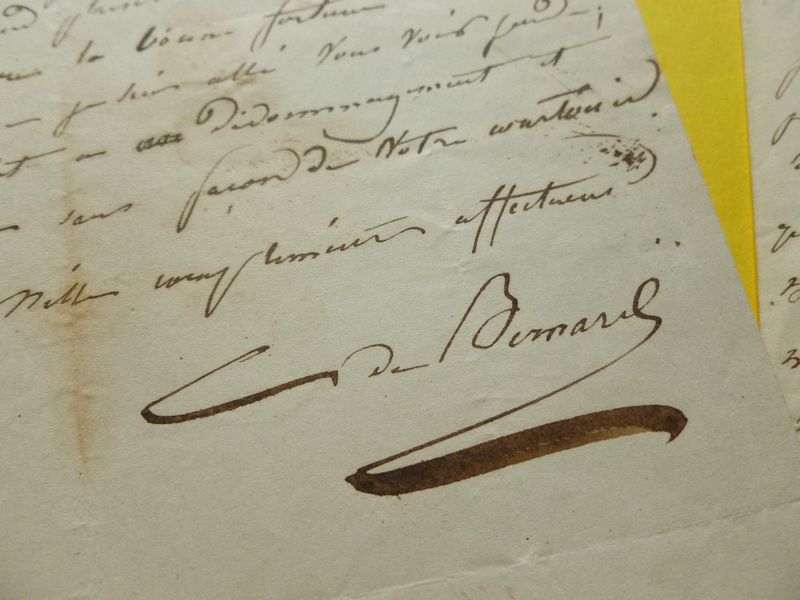 la bonne fortune
je suis allé vous voir
Dédommagement et
sans façon de votre courtoisie
Mille complimens affectueux
C de Bernard